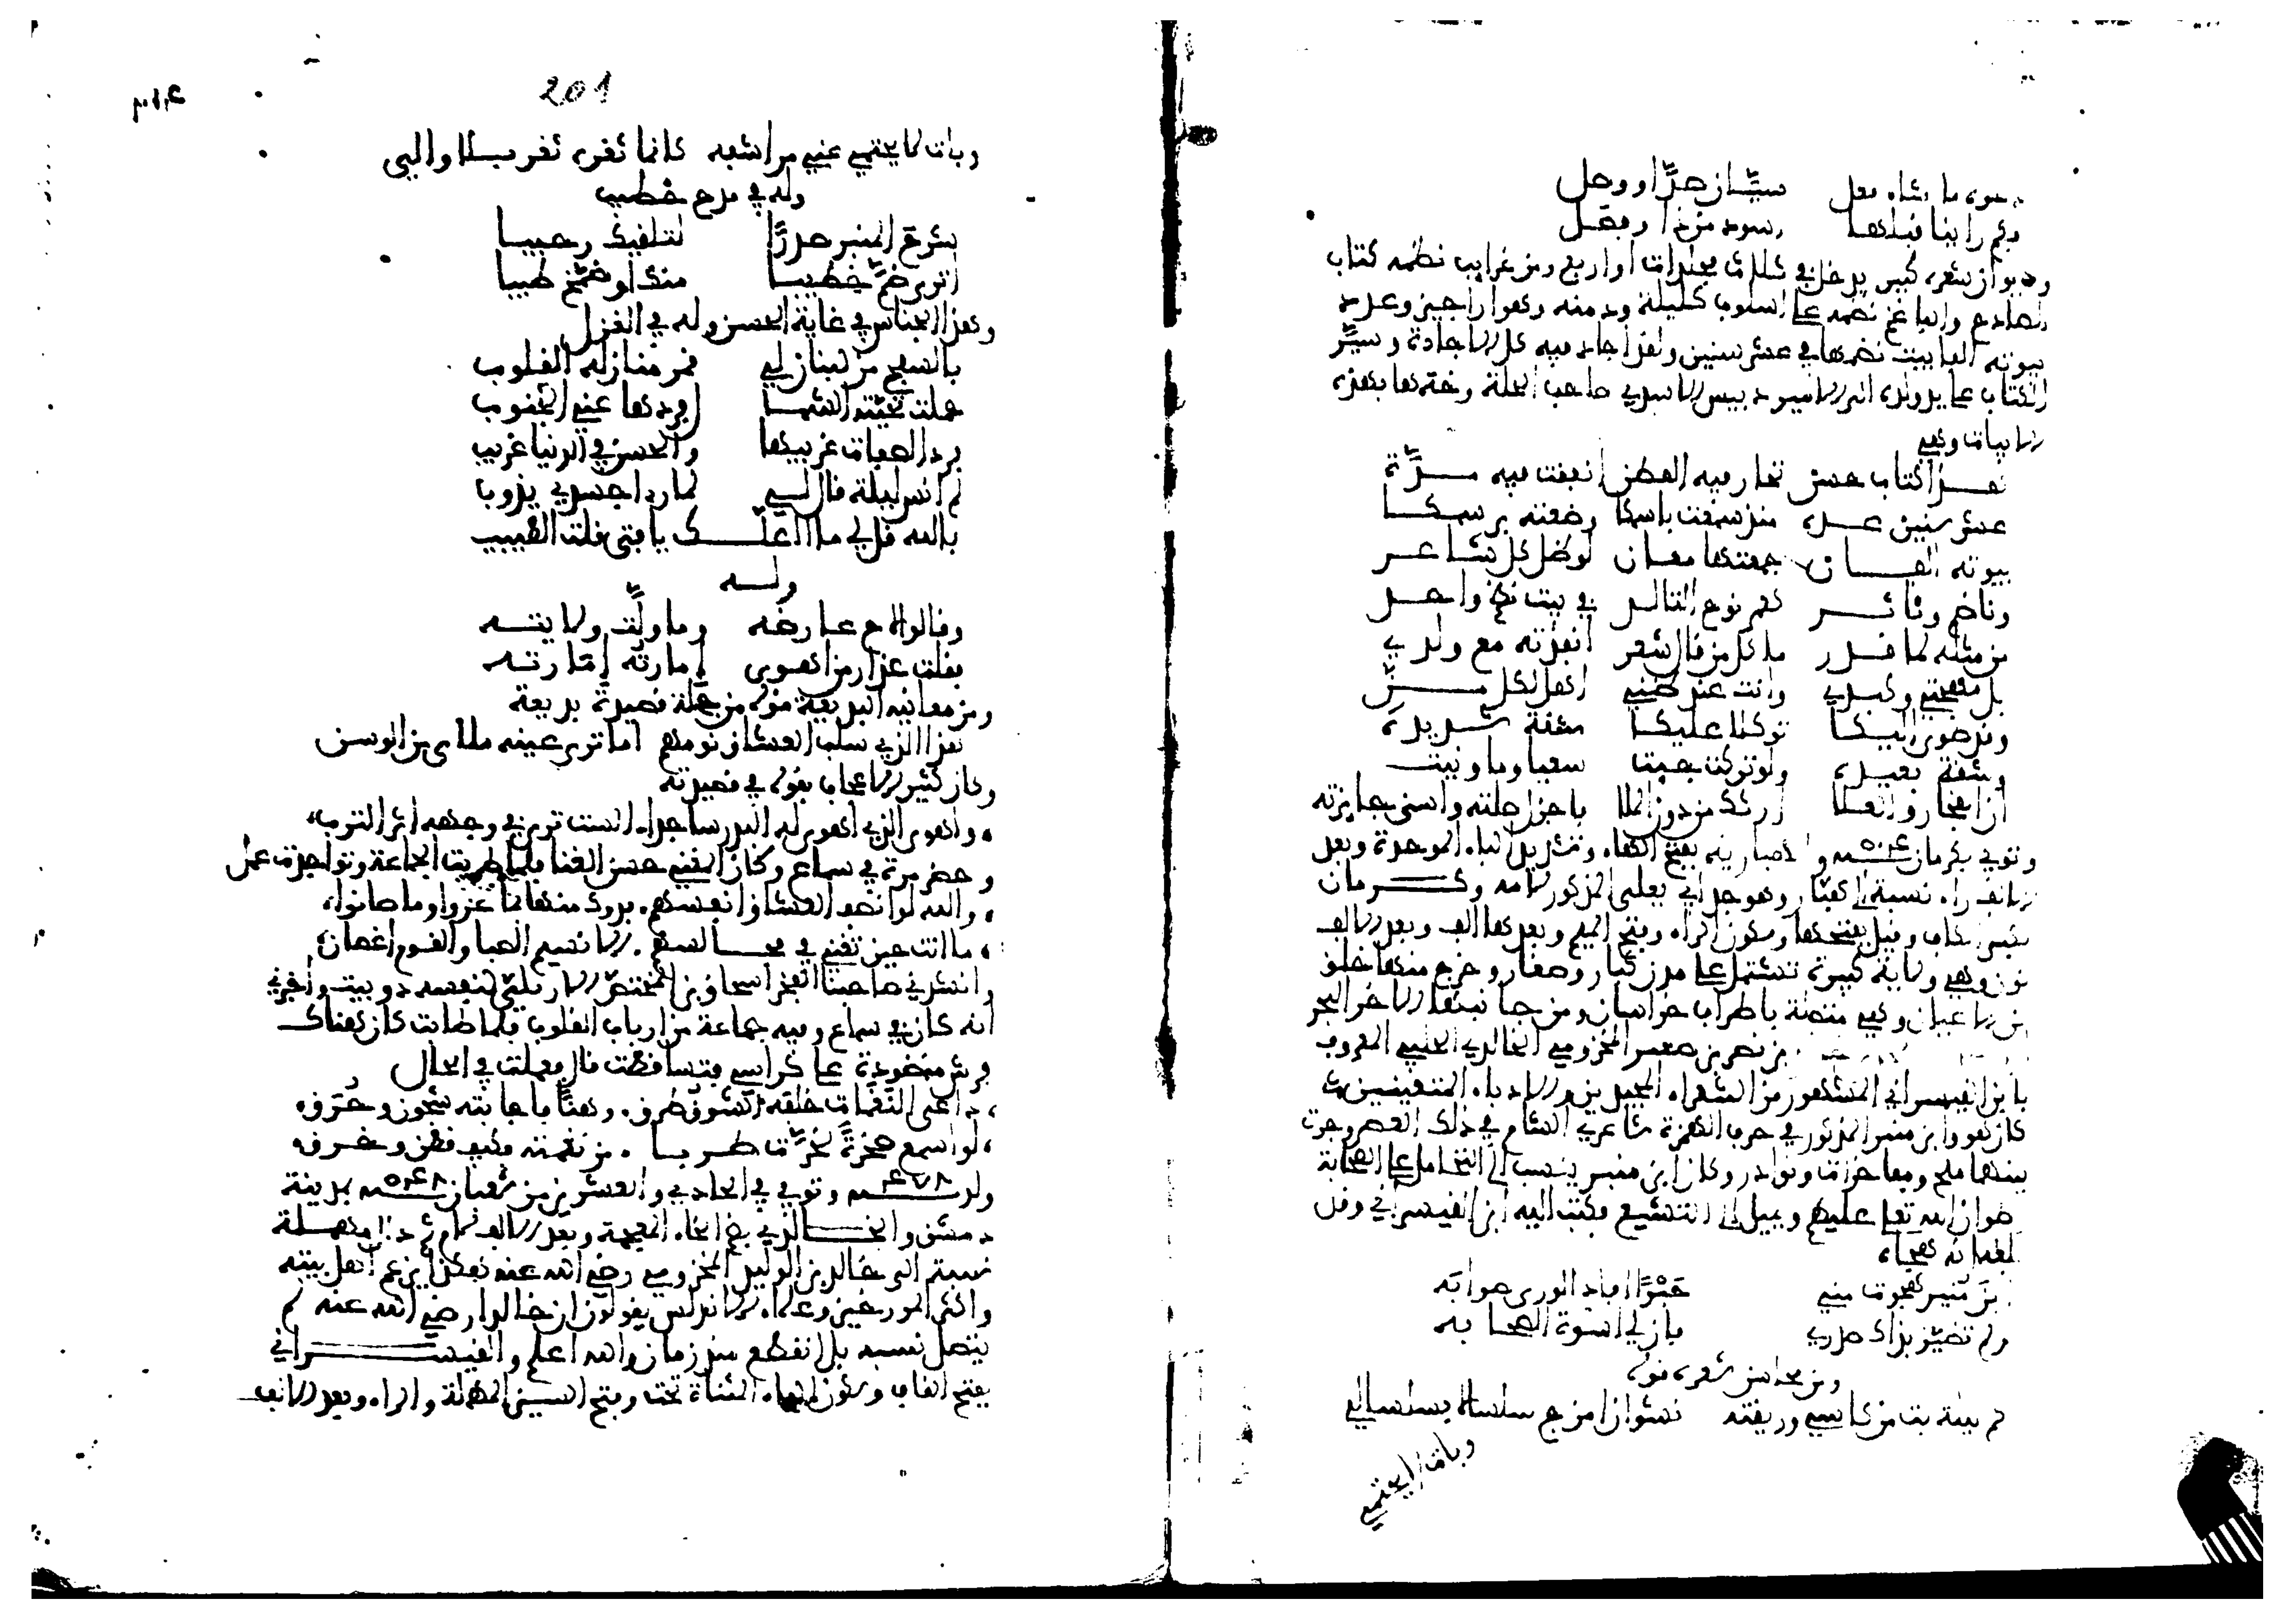 سيان جدا ووصل
وكم رأينا قبلها يسود من ذا وبقل
وديوان شعره كبير يدخل في ثلاث مجلدات أو أربع ومن غرايب نظمه كتاب
الصادح والباغم نظمه على أسلوب كليلة ودمنة وهو أراجيز وعدد
بيوته ألفا بيت نظمها في عشر سنين ولقد أجاد فيه كل الإجادة وسير
الكتاب على يد ولده إلى الأمير دبيس الأسدي صاحب الحلة وختمها بهذه
الأبيات وهي
هذا كتاب حسن تحار فيه الفطن أنفقت فيه مدة
عشر سنين عده منذ سمعت باسمكا وضعته برسمكا
بيوته ألفان جمعتها معان لو ظل كل شاعر
وناظم وناثر كعمر نوح التالد في بيت نظم واحد
من مثله لما قدر ما كل من قال شعر أنفذته مع ولدي
بل مهجتي وكبدي وأنت عند ظني أهل لكل من
وقد طوى إليكا توكلا عليكا مشقة شديدة
وشقة بعيده ولو تركت جيت سعيا وما ونيت
إن الفخار والعلا إرثك من دون الملا فأجزل صلته وأسنى جايزته
وتوفي بكرمان ٥٠٤ والهبارية بفتح الهاء وتشديد الباء الموحدة وبعد
الألف راء نسبة إلى هبار وهو جد أبي يعلى المذكور لأمه وكرمان
بكسر الكاف وقيل بفتحها وسكون الراء وفتح الميم وبعدها ألف وبعد الألف
نون وهي ولاية كبيرة تشتمل على مدن كبار وصغار وخرج منها خلق
من الأعيان وهي متصلة بأطراف خراسان ومن جانبها الآخر البحر
بن نصر بن صغير المخزومي الخالدي الحلبي المعروف
بابن القيسراني المشهور من الشعراء المجيدين والأدباء المتفننين
كان هو وابن منير المذكور في حرف الهمزة شاعري الشام في ذلك العصر وجرت
بينهما ملح ومحاضرات ونوادر وكان ابن منير ينسب إلى التحامل على الصحابة
رضوان الله تعلى عليهم ويميل إلى التشيع فكتب إليه ابن القيسراني وقد
بلغه أنه هجاه
ابن منير هجوت مني حبرا أفاد الورى صوابه
ولم تضيق بذاك صدري فإن لي أسوة الصحابه
ومن محاسن شعره قوله
كم ليلة بت من كاسي وريقته نشوان أمزج سلسالا بسلسال
وبات لا يحتمي
201
وبات لا يحتمي عني مراشفه كأنما ثغره ثغر بلا والي
وله في مدح خطيب
شرح المنبر صدرا لتلقيك رحيبا
أترى ضم خطيبا منك أو ضمخ طيبا
وهذا الجناس في غاية الحسن وله في الغزل
بالسفح من لبنان لي قمر منازله القلوب
حملت تحيته الشما ل فردها عني الجنوب
فرد الصفات غريبها والحسن في الدنيا غريب
لم أنس ليلة قال لي لما رأى جسدي يذوب
بالله قل لي ما أعلك يا فتى قلت الطبيب
وله
وقالوا لاح عارضه وما ولت ولايته
فقلت عذار من أهوى إمارته أمارته
ومن معانيه البديعة قوله من جملة قصيدة بديعة
هذا الذي سلب العشاق نومهم أما ترى عينه ملأى من الوسن
وكان كثير الإعجاب بقوله في قصيدته
وأهوى الذي أهوى له البدر ساجدا ألست ترى في وجهه أثر الترب
وحضر مرة في سماع وكان المغني حسن الغنا فلما طربت الجماعة وتواجدت عمل
والله لو أنصف العشاق أنفسهم فدوك منها بما عزوا وما صانوا
ما أنت حين تغني في مجالسهم إلا نسيم الصبا والقوم أغصان
وأنشدني صاحبنا الفخر إسحاق بن المختص الإربلي لنفسه دوبيت وأخبرني
أنه كان في سماع وفيه جماعة من أرباب القلوب فلما طابت كان هناك
فرش منضودة على كراسي فتساقطت قال فعملت في الحال
داعي النغمات حلقة الشوق طرق وهنا فأجابته شجون وحرق
لو أسمع صخرة لخرت طربا من نغمته فكيف قطن وخرق
ولد ٤٧٨ وتوفي في الحادي والعشرين من شعبان ٥٤٨ بمدينة
دمشق والخالدي بفتح الخاء المعجمة وبعد الألف لام ثم دال مهملة
نسبة إلى خالد بن الوليد المخزومي رضي الله عنه هكذا يزعم أهل بيته
وأكثر المورخين وعلماء الأنساب يقولون إن خالدا رضي الله عنه لم
يتصل نسبه بل انقطع منذ زمان والله أعلم والقيسراني
بفتح القاف وسكون الياء المثناة تحت وفتح السين المهملة والراء وبعد الألف